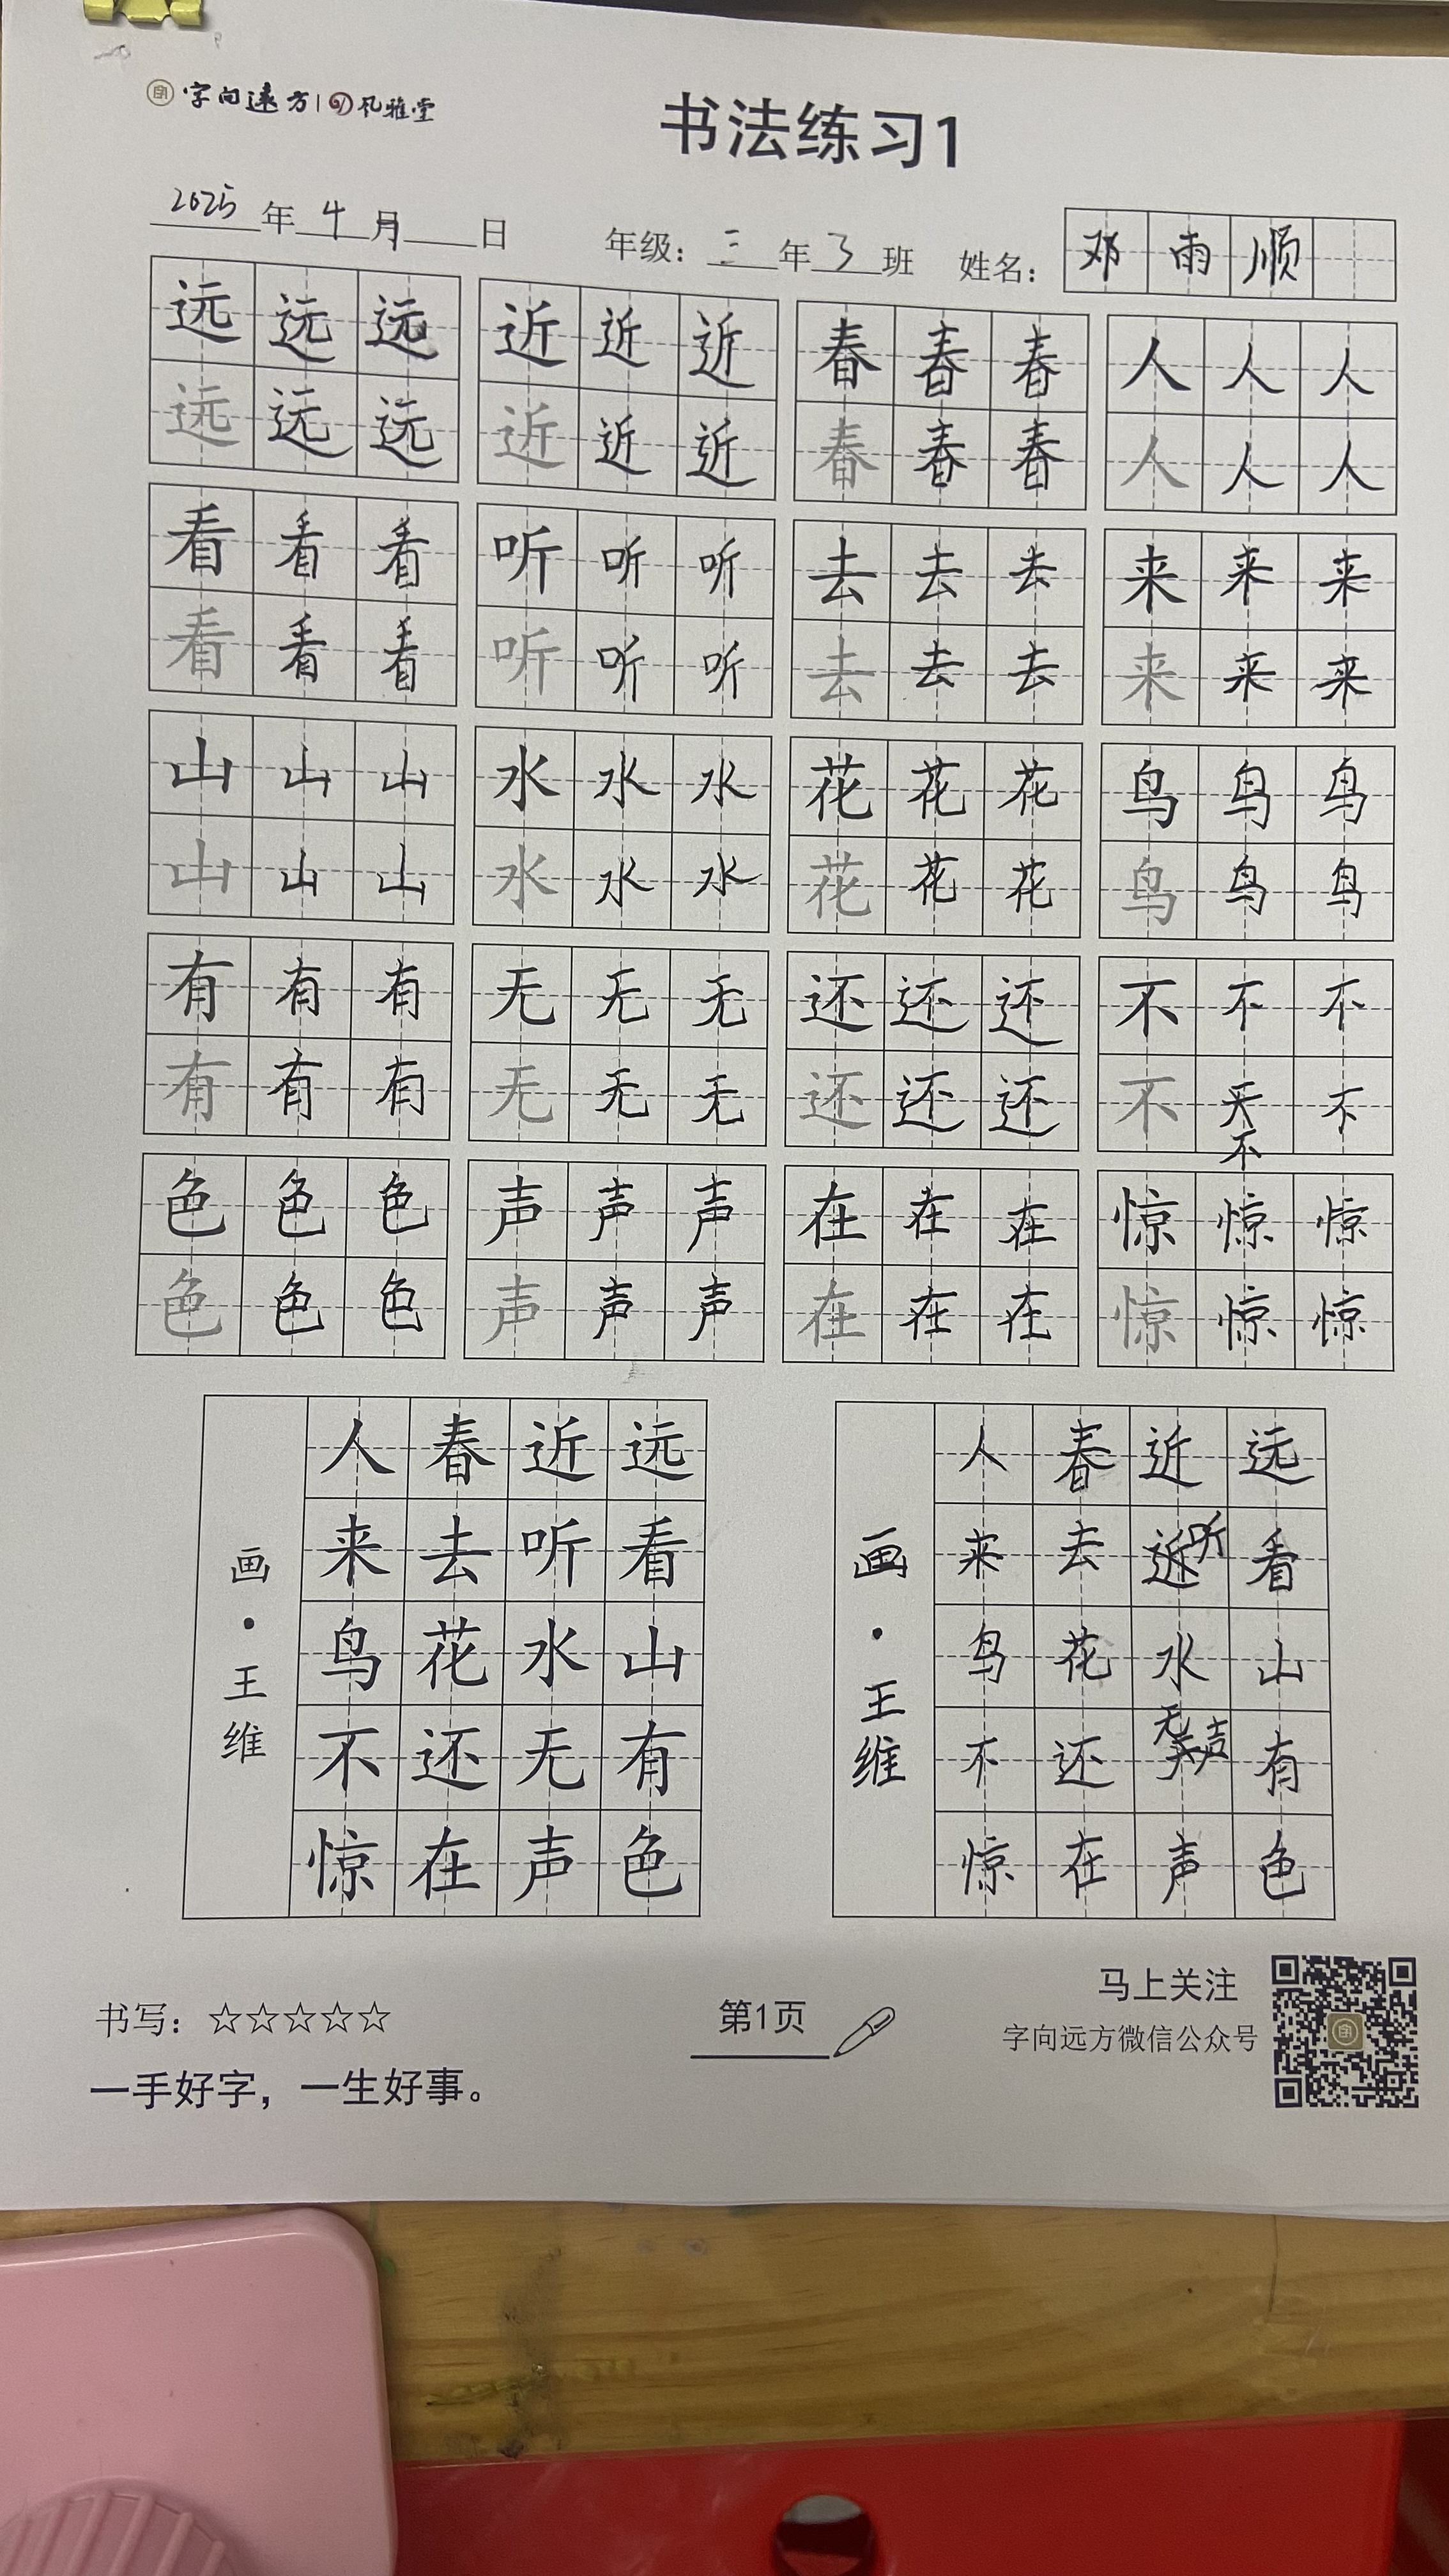 字向远方 | 风雅堂
书法练习1
2025年4月 日 年级：三年3班 姓名：邓雨顺
远远远 近近近 春春春 人人人
远远远 近近近 春春春 人人人
看看看 听听听 去去去 来来来
看看看 听听听 去去去 来来来
山山山 水水水 花花花 鸟鸟鸟
山山山 水水水 花花花 鸟鸟鸟
有有有 无无无 还还还 不不不
有有有 无无无 还还还 不天不
不
色色色 声声声 在在在 惊惊惊
色色色 声声声 在在在 惊惊惊
远看山有色
近听水无声
春去花还在
人来鸟不惊
画·王维
远看山有色
近听水无声
春去花还在
人来鸟不惊
画·王维
书写：☆☆☆☆☆
一手好字，一生好事。
第1页
马上关注
字向远方微信公众号